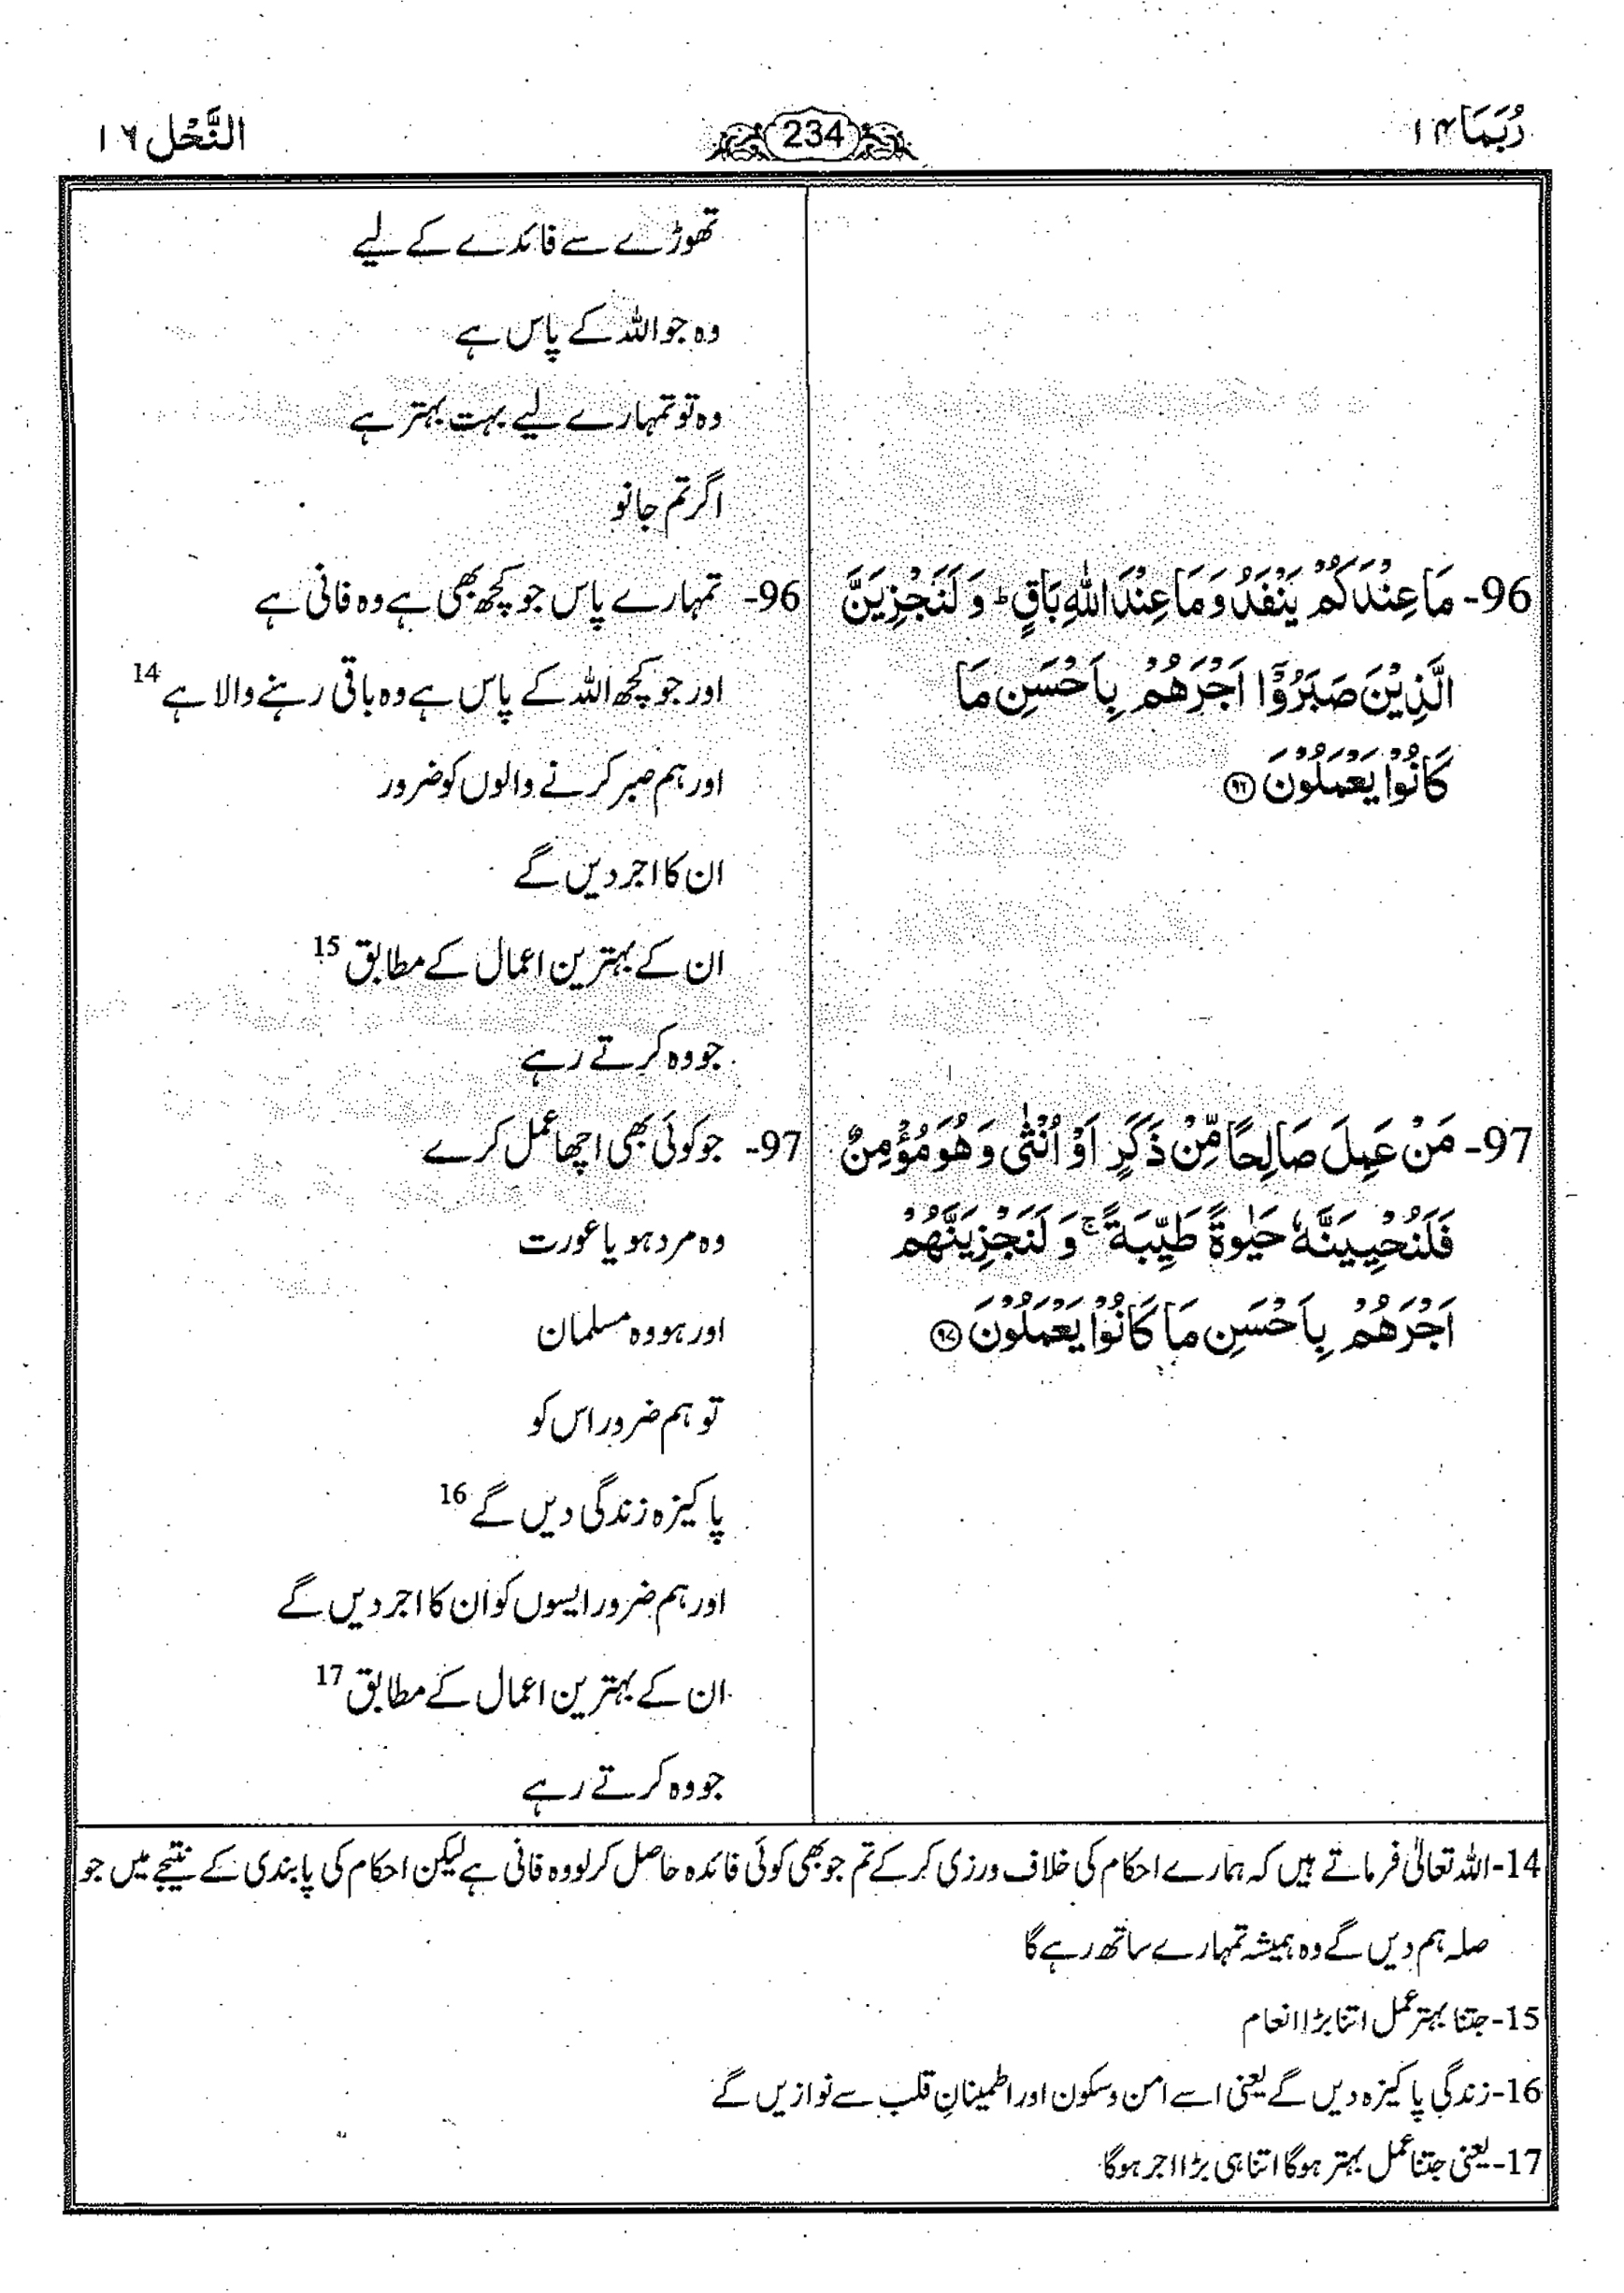 رُبَمَا ۱۴
234
النَّحْل ۱۶
تھوڑے سے فائدے کے لیے
وہ جو اللہ کے پاس ہے
وہ تو تمہارے لیے بہت بہتر ہے
اگر تم جانو
96- مَا عِنْدَكُمْ يَنْفَدُ وَ مَا عِنْدَ اللّٰهِ بَاقٍ ؕ وَ لَنَجْزِيَنَّ
الَّذِيْنَ صَبَرُوْۤا اَجْرَهُمْ بِاَحْسَنِ مَا
كَانُوْا يَعْمَلُوْنَ ﴿۹۶﴾
96- تمہارے پاس جو کچھ بھی ہے وہ فانی ہے
اور جو کچھ اللہ کے پاس ہے وہ باقی رہنے والا ہے 14
اور ہم صبر کرنے والوں کو ضرور
ان کا اجر دیں گے
ان کے بہترین اعمال کے مطابق 15
جو وہ کرتے رہے
97- مَنْ عَمِلَ صَالِحًا مِّنْ ذَكَرٍ اَوْ اُنْثٰى وَ هُوَ مُؤْمِنٌ
فَلَنُحْيِيَنَّهٗ حَيٰوةً طَيِّبَةً ۚ وَ لَنَجْزِيَنَّهُمْ
اَجْرَهُمْ بِاَحْسَنِ مَا كَانُوْا يَعْمَلُوْنَ ﴿۹۷﴾
97- جو کوئی بھی اچھا عمل کرے
وہ مرد ہو یا عورت
اور ہو وہ مسلمان
تو ہم ضرور اس کو
پاکیزہ زندگی دیں گے 16
اور ہم ضرور ایسوں کو ان کا اجر دیں گے
ان کے بہترین اعمال کے مطابق 17
جو وہ کرتے رہے
14- اللہ تعالیٰ فرماتے ہیں کہ ہمارے احکام کی خلاف ورزی کر کے تم جو بھی کوئی فائدہ حاصل کر لو وہ فانی ہے لیکن احکام کی پابندی کے نتیجے میں جو
صلہ ہم دیں گے وہ ہمیشہ تمہارے ساتھ رہے گا
15- جتنا بہتر عمل اتنا بڑا انعام
16- زندگی پاکیزہ دیں گے یعنی اسے امن و سکون اور اطمینانِ قلب سے نوازیں گے
17- یعنی جتنا عمل بہتر ہوگا اتنا ہی بڑا اجر ہوگا